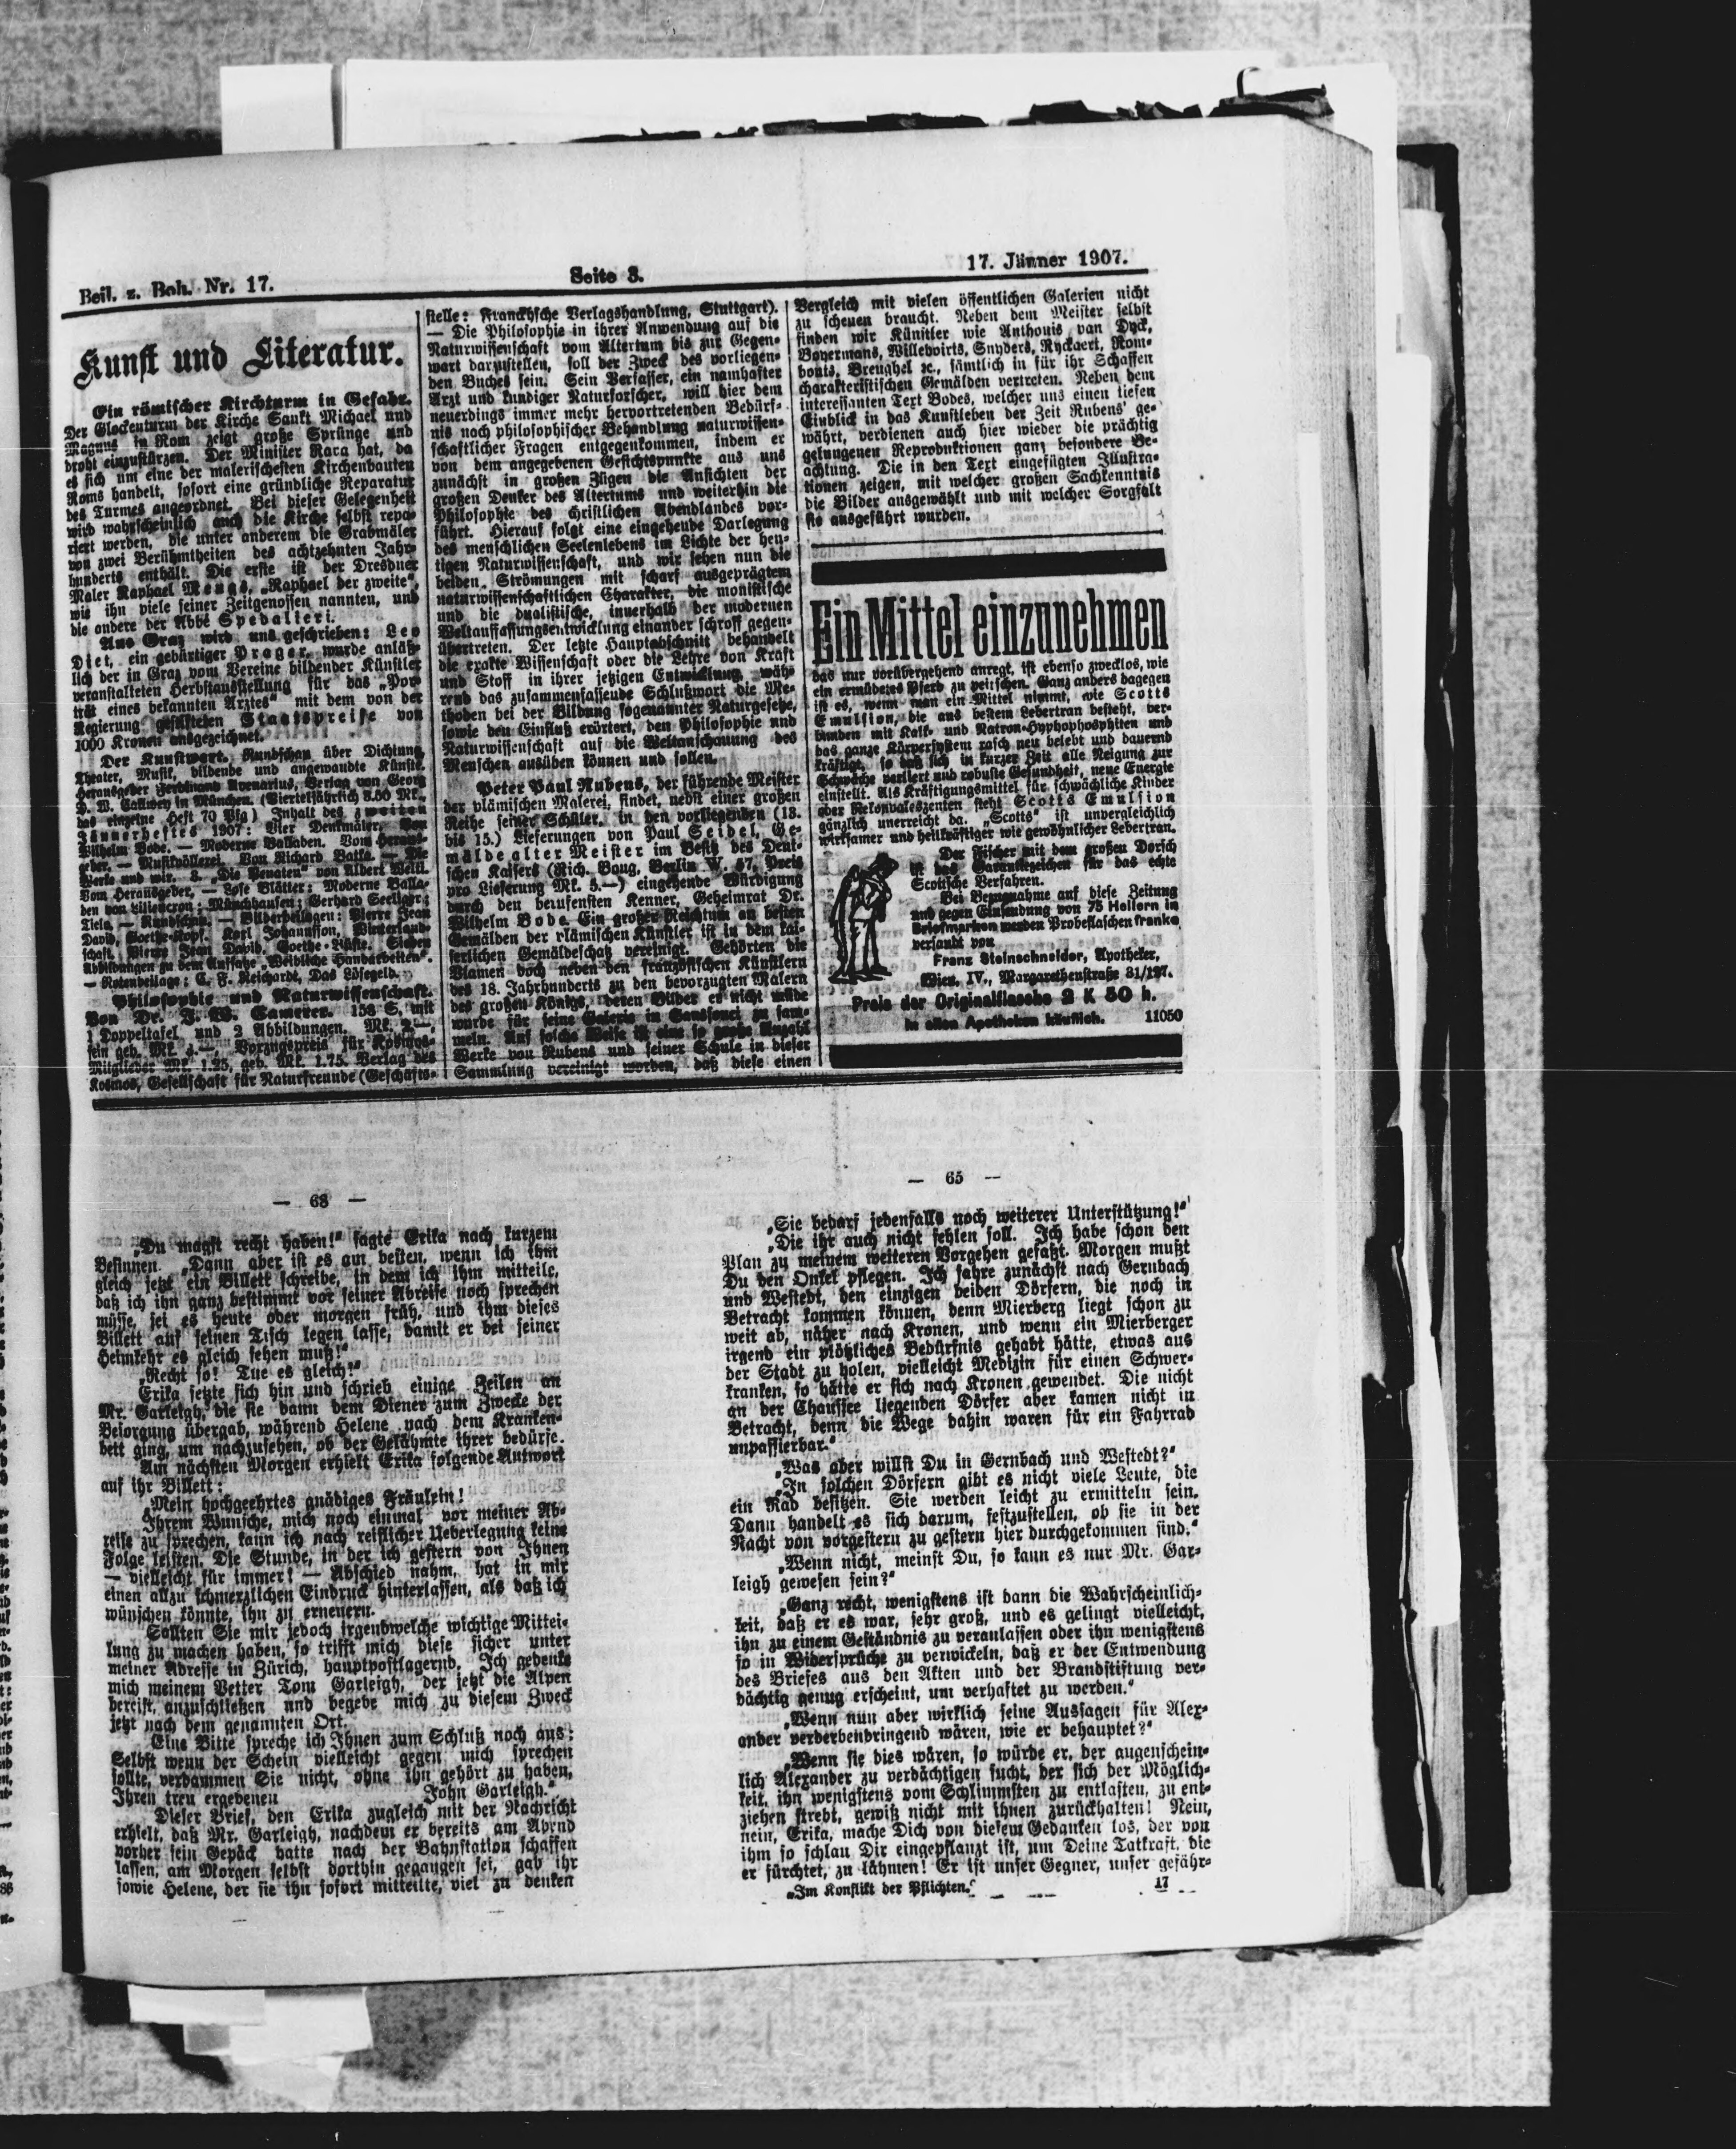 Beil. z. Boh. Nr. 17.
Seite 3.
17. Jänner 1907.
Kunst und Literatur.
Ein römischer Kirchturm in Gefahr.
Der Glockenturm der Kirche Sankt Michael und
Magnus in Rom zeigt große Sprünge und
droht einzustürzen. Der Minister Rava hat, da
es sich um eine der malerischesten Kirchenbauten
Roms handelt, sofort eine gründliche Reparatur
des Turmes angeordnet. Bei dieser Gelegenheit
wird wahrscheinlich auch die Kirche selbst repa-
riert werden, die unter anderem die Grabmäler
von zwei Berühmtheiten des achtzehnten Jahr-
hunderts enthält. Die erste ist der Dresdner
Maler Raphael Mengs, „Raphael der zweite“,
wie ihn viele seiner Zeitgenossen nannten, und
die andere der Abbé Spedalieri.
Aus Graz wird uns geschrieben: Leo
Diet, ein gebürtiger Prager, wurde anläß-
lich der in Graz vom Vereine bildender Künstler
veranstalteten Herbstausstellung für das „Por-
trät eines bekannten Arztes“ mit dem von der
Regierung gestifteten Staatspreise von
1000 Kronen ausgezeichnet.
Der Kunstwart. Rundschau über Dichtung,
Theater, Musik, bildende und angewandte Künste.
Herausgeber Ferdinand Avenarius, Verlag von Georg
D. W. Callwey in München. (Vierteljährlich 3.50 Mk.,
das einzelne Heft 70 Pfg.) Inhalt des zweiten
Jännerheftes 1907: Vier Denkmäler. Von
Wilhelm Bode. — Moderne Balladen. Vom Heraus-
geber. — Musikvöllerei. Von Richard Batka. — Die
Werke und wir. 3. „Die Penaten“ von Albert Welti.
Vom Herausgeber. — Lose Blätter: Moderne Balla-
den von Liliencron; Münchhausen; Gerhard Seeliger;
Tielo. — Rundschau. — Bilderbeilagen: Pierre Jean
David, Goethe-Kopf. Karl Johansson, Winterland-
schaft. Pierre Jean David, Goethe-Büste. Sieben
Abbildungen zu dem Aufsatze „Weibliche Handarbeiten“.
— Notenbeilage: C. F. Reichardt, Das Lösegeld.
Philosophie und Naturwissenschaft.
Von Dr. J. W. Camerer. 158 S. mit
1 Doppeltafel und 2 Abbildungen. Mk. 2.—,
fein geb. Mk. 3.—, Vorzugspreis für Kosmos-
Mitglieder Mk. 1.25, geb. Mk. 1.75. Verlag des
Kosmos, Gesellschaft für Naturfreunde (Geschäfts-
stelle: Franckhsche Verlagshandlung, Stuttgart).
— Die Philosophie in ihrer Anwendung auf die
Naturwissenschaft vom Altertum bis zur Gegen-
wart darzustellen, soll der Zweck des vorliegen-
den Buches sein. Sein Verfasser, ein namhafter
Arzt und kundiger Naturforscher, will hier dem
neuerdings immer mehr hervortretenden Bedürf-
nis nach philosophischer Behandlung naturwissen-
schaftlicher Fragen entgegenkommen, indem er
von dem angegebenen Gesichtspunkte aus uns
zunächst in großen Zügen die Ansichten der
großen Denker des Altertums und weiterhin die
Philosophie des christlichen Abendlandes vor-
führt. Hierauf folgt eine eingehende Darlegung
des menschlichen Seelenlebens im Lichte der heu-
tigen Naturwissenschaft, und wir sehen nun die
beiden Strömungen mit scharf ausgeprägtem
naturwissenschaftlichen Charakter, die monistische
und die dualistische, innerhalb der modernen
Weltauffassungsentwicklung einander schroff gegen-
übertreten. Der letzte Hauptabschnitt behandelt
die exakte Wissenschaft oder die Lehre von Kraft
und Stoff in ihrer jetzigen Entwicklung, wäh-
rend das zusammenfassende Schlußwort die Me-
thoden bei der Bildung sogenannter Naturgesetze,
sowie den Einfluß erörtert, den Philosophie und
Naturwissenschaft auf die Weltanschauung des
Menschen ausüben können und sollen.
Peter Paul Rubens, der führende Meister
der vlämischen Malerei, findet, nebst einer großen
Reihe seiner Schüler, in den vorliegenden (13.
bis 15.) Lieferungen von Paul Seidel, Ge-
mälde alter Meister im Besitz des Deut-
schen Kaisers (Rich. Bong, Berlin W. 57, Preis
pro Lieferung Mk. 5.—) eingehende Würdigung
durch den berufensten Kenner, Geheimrat Dr.
Wilhelm Bode. Ein großer Reichtum an besten
Gemälden der vlämischen Künstler ist in dem kai-
serlichen Gemäldeschatz vereinigt. Gehörten die
Vlamen doch neben den französischen Künstlern
des 18. Jahrhunderts zu den bevorzugten Malern
des großen Königs, deren Bilder er nicht müde
wurde für seine Galerie in Sanssouci zu sam-
meln. Auf solche Weise ist eine so große Anzahl
Werke von Rubens und seiner Schule in dieser
Sammlung vereinigt worden, daß diese einen
Vergleich mit vielen öffentlichen Galerien nicht
zu scheuen braucht. Neben dem Meister selbst
finden wir Künstler wie Anthonis van Dyck,
Boyermans, Willeboirts, Snyders, Ryckaert, Rom-
bouts, Breughel ꝛc., sämtlich in für ihr Schaffen
charakteristischen Gemälden vertreten. Neben dem
interessanten Text Bodes, welcher uns einen tiefen
Einblick in das Kunstleben der Zeit Rubens' ge-
währt, verdienen auch hier wieder die prächtig
gelungenen Reproduktionen ganz besondere Be-
achtung. Die in den Text eingefügten Illustra-
tionen zeigen, mit welcher großen Sachkenntnis
die Bilder ausgewählt und mit welcher Sorgfalt
sie ausgeführt wurden.
Ein Mittel einzunehmen
das nur vorübergehend anregt, ist ebenso zwecklos, wie
ein ermüdetes Pferd zu peitschen. Ganz anders dagegen
ist es, wenn man ein Mittel nimmt, wie Scotts
Emulsion, die aus bestem Lebertran besteht, ver-
bunden mit Kalk- und Natron-Hyphophosphiten und
das ganze Körpersystem rasch neu belebt und dauernd
kräftigt, so daß sich in kurzer Zeit alle Neigung zur
Schwäche verliert und robuste Gesundheit, neue Energie
einstellt. Als Kräftigungsmittel für schwächliche Kinder
oder Rekonvaleszenten steht Scotts Emulsion
gänzlich unerreicht da. „Scotts“ ist unvergleichlich
wirksamer und heilkräftiger wie gewöhnlicher Lebertran.
Der Fischer mit dem großen Dorsch
ist das Garantiezeichen für das echte
Scottsche Verfahren.
Bei Bezugnahme auf diese Zeitung
und gegen Einsendung von 75 Hellern in
Briefmarken werden Probeflaschen franko
versandt von
Franz Steinschneider, Apotheker,
Wien, IV., Margarethenstraße 31/127.
Preis der Originalflasche 2 K 50 h.
In allen Apotheken käuflich. 11050
— 63 —
„Du magst recht haben!“ sagte Erika nach kurzem
Besinnen. „Dann aber ist es am besten, wenn ich ihm
gleich jetzt ein Billett schreibe, in dem ich ihm mitteile,
daß ich ihn ganz bestimmt vor seiner Abreise noch sprechen
müsse, sei es heute oder morgen früh, und ihm dieses
Billett auf seinen Tisch legen lasse, damit er bei seiner
Heimkehr es gleich sehen muß!“
„Recht so! Tue es gleich!“
Erika setzte sich hin und schrieb einige Zeilen an
Mr. Garleigh, die sie dann dem Diener zum Zwecke der
Besorgung übergab, während Helene nach dem Kranken-
bett ging, um nachzusehen, ob der Gelähmte ihrer bedürfe.
Am nächsten Morgen erhielt Erika folgende Antwort
auf ihr Billett:
„Mein hochgeehrtes gnädiges Fräulein!
Ihrem Wunsche, mich noch einmal vor meiner Ab-
reise zu sprechen, kann ich nach reiflicher Ueberlegung keine
Folge leisten. Die Stunde, in der ich gestern von Ihnen
— vielleicht für immer! — Abschied nahm, hat in mir
einen allzu schmerzlichen Eindruck hinterlassen, als daß ich
wünschen könnte, ihn zu erneuern.
Sollten Sie mir jedoch irgendwelche wichtige Mittei-
lung zu machen haben, so trifft mich diese sicher unter
meiner Adresse in Zürich, hauptpostlagernd. Ich gedenke
mich meinem Vetter Tom Garleigh, der jetzt die Alpen
bereist, anzuschließen und begebe mich zu diesem Zweck
jetzt nach dem genannten Ort.
Eine Bitte spreche ich Ihnen zum Schluß noch aus:
Selbst wenn der Schein vielleicht gegen mich sprechen
sollte, verdammen Sie nicht, ohne ihn gehört zu haben,
Ihren treu ergebenen John Garleigh.“
Dieser Brief, den Erika zugleich mit der Nachricht
erhielt, daß Mr. Garleigh, nachdem er bereits am Abend
vorher sein Gepäck hatte nach der Bahnstation schaffen
lassen, am Morgen selbst dorthin gegangen sei, gab ihr
sowie Helene, der sie ihn sofort mitteilte, viel zu denken
— 65 —
„Sie bedarf jedenfalls noch weiterer Unterstützung!“
„Die ihr auch nicht fehlen soll. Ich habe schon den
Plan zu meinem weiteren Vorgehen gefaßt. Morgen mußt
Du den Onkel pflegen. Ich fahre zunächst nach Gernbach
und Westedt, den einzigen beiden Dörfern, die noch in
Betracht kommen können, denn Mierberg liegt schon zu
weit ab, näher nach Kronen, und wenn ein Mierberger
irgend ein plötzliches Bedürfnis gehabt hätte, etwas aus
der Stadt zu holen, vielleicht Medizin für einen Schwer-
kranken, so hätte er sich nach Kronen gewendet. Die nicht
an der Chaussee liegenden Dörfer aber kamen nicht in
Betracht, denn die Wege dahin waren für ein Fahrrad
unpassierbar.“
„Was aber willst Du in Gernbach und Westedt?“
„In solchen Dörfern gibt es nicht viele Leute, die
ein Rad besitzen. Sie werden leicht zu ermitteln sein.
Dann handelt es sich darum, festzustellen, ob sie in der
Nacht von vorgestern zu gestern hier durchgekommen sind.“
„Wenn nicht, meinst Du, so kann es nur Mr. Gar-
leigh gewesen sein?“
„Ganz recht, wenigstens ist dann die Wahrscheinlich-
keit, daß er es war, sehr groß, und es gelingt vielleicht,
ihn zu einem Geständnis zu veranlassen oder ihn wenigstens
so in Widersprüche zu verwickeln, daß er der Entwendung
des Briefes aus den Akten und der Brandstiftung ver-
dächtig genug erscheint, um verhaftet zu werden.“
„Wenn nun aber wirklich seine Aussagen für Alex-
ander verderbenbringend wären, wie er behauptet?“
„Wenn sie dies wären, so würde er, der augenschein-
lich Alexander zu verdächtigen sucht, der sich der Möglich-
keit, ihn wenigstens vom Schlimmsten zu entlasten, zu ent-
ziehen strebt, gewiß nicht mit ihnen zurückhalten! Nein,
nein, Erika, mache Dich von diesem Gedanken los, der von
ihm so schlau Dir eingepflanzt ist, um Deine Tatkraft, die
er fürchtet, zu lähmen! Er ist unser Gegner, unser gefähr-
„Im Konflikt der Pflichten.“ 17